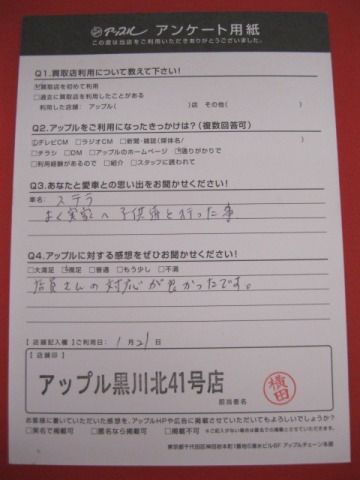 アップル アンケート用紙
この度は当店をご利用いただきありがとうございました。
Q1.買取店利用について教えて下さい!
☑買取店を初めて利用
□過去に買取店を利用したことがある
利用した店舗: アップル( )店 その他( )
Q2.アップルをご利用になったきっかけは?(複数回答可)
□テレビCM □ラジオCM □新聞・雑誌(媒体名/ )
□チラシ □DM □アップルのホームページ ☑通りがかりで
□利用経験があるので □紹介 □スタッフに誘われて
Q3.あなたと愛車との思い出をお聞かせください!
車名: ステラ
よく実家へ子供達と行った事
Q4.アップルに対する感想をぜひお聞かせください!
□大満足 ☑満足 □普通 □もう少し □不満
店員さんの対応が良かったです。
【店舗記入欄】ご利用日: 1月21日
【店舗印】
アップル黒川北41号店
担当者名
横田
お客様に書いていただいた感想を、アップルHPや広告に掲載させていただいてもよろしいでしょうか?
□実名で掲載可 □匿名なら掲載可 □掲載不可 ※ご記入がない場合は匿名での掲載とさせていただきます。
アップルチェーン本部